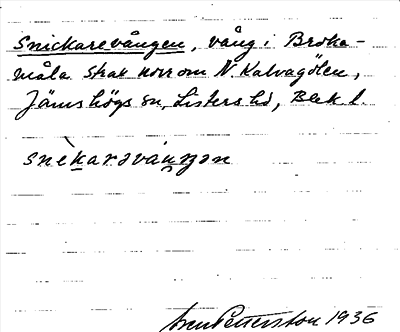 Snickarevången, vång i Broka-
måla strax norr om N. Kalvagölen,
Jämshögs sn, Listers hd, Blek. l.
snèkarəváŋŋən
Pettersson 1936